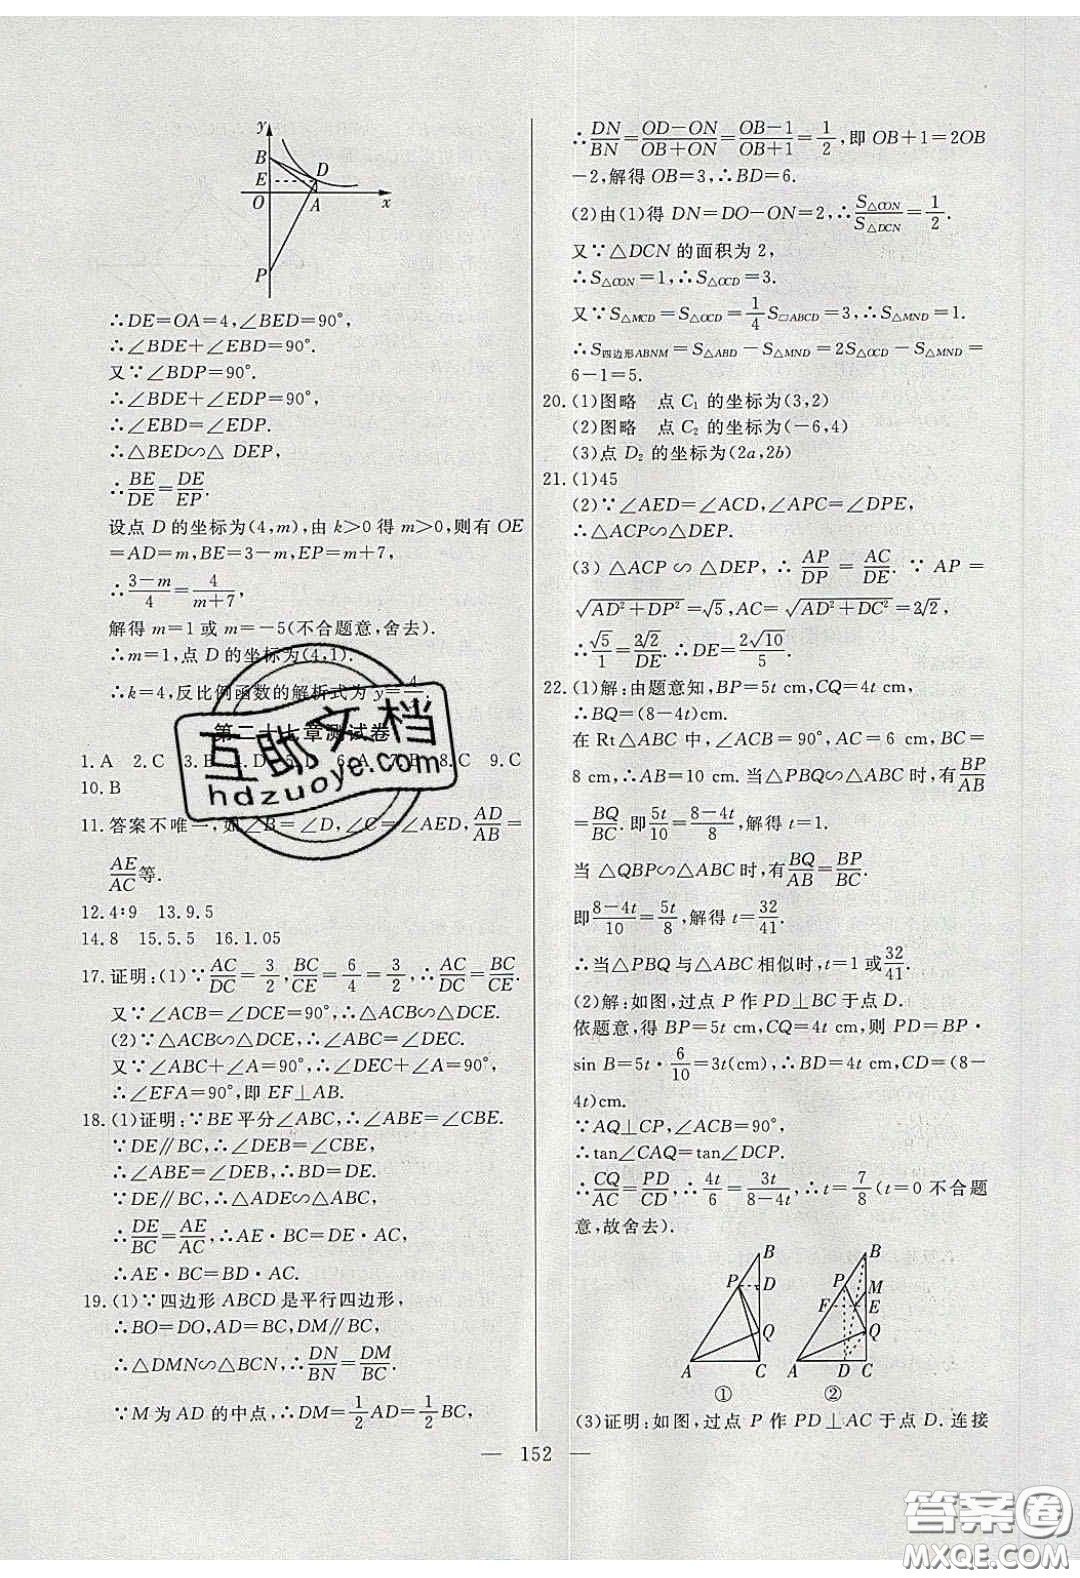 y
B
D
E
O
A
x
P
∴DE=OA=4,∠BED=90°,
∴∠BDE+∠EBD=90°.
又∵∠BDP=90°.
∴∠BDE+∠EDP=90°,
∴∠EBD=∠EDP.
∴△BED∽△ DEP,
∴BE/DE=DE/EP.
设点 D 的坐标为(4,m),由 k>0 得 m>0,则有 OE
=AD=m,BE=3-m,EP=m+7,
∴(3-m)/4=4/(m+7),
解得 m=1 或 m=-5(不合题意,舍去).
∴m=1,点 D 的坐标为(4,1).
∴k=4,反比例函数的解析式为 y=4/
第二十七章测试卷
1.A 2.C 3.B 4.D 5.D 6.A 7.B 8.C 9.C
10.B
11.答案不唯一,如∠B=∠D,∠C=∠AED,AD/AB=
AE/AC等.
12.4∶9 13.9.5
14.8 15.5.5 16.1.05
17.证明:(1)∵AC/DC=3/2,BC/CE=6/4=3/2,∴AC/DC=BC/CE.
又∵∠ACB=∠DCE=90°,∴△ACB∽△DCE.
(2)∵△ACB∽△DCE,∴∠ABC=∠DEC.
又∵∠ABC+∠A=90°,∴∠DEC+∠A=90°,
∴∠EFA=90°,即 EF⊥AB.
18.(1)证明:∵BE 平分∠ABC,∴∠ABE=∠CBE.
∵DE∥BC,∴∠DEB=∠CBE,
∴∠ABE=∠DEB,∴BD=DE.
∵DE∥BC,∴△ADE∽△ABC,
∴DE/BC=AE/AC,∴AE·BC=DE·AC,
∴AE·BC=BD·AC.
19.(1)∵四边形 ABCD 是平行四边形,
∴BO=DO,AD=BC,DM∥BC,
∴△DMN∽△BCN,∴DN/BN=DM/BC.
∵M 为 AD 的中点,∴DM=1/2AD=1/2BC,
∴DN/BN=(OD-ON)/(OB+ON)=(OB-1)/(OB+1)=1/2,即 OB+1=2OB
-2,解得 OB=3,∴BD=6.
(2)由(1)得 DN=DO-ON=2,∴S△CON/S△DCN=1/2.
又∵△DCN 的面积为 2,
∴S△CON=1,∴S△OCD=3.
又∵S△MCD=S△OCD=1/4S□ABCD=3,∴S△MND=1.
∴S四边形ABNM=S△ABD-S△MND=2S△OCD-S△MND=
6-1=5.
20.(1)图略 点 C₁ 的坐标为(3,2)
(2)图略 点 C₂ 的坐标为(-6,4)
(3)点 D₂ 的坐标为(2a,2b)
21.(1)45
(2)∵∠AED=∠ACD,∠APC=∠DPE,
∴△ACP∽△DEP.
(3) △ACP ∽ △DEP, ∴ AP/DP = AC/DE. ∵ AP=
√(AD²+DP²)=√5,AC=√(AD²+DC²)=2√2,
∴√5/1=2√2/DE.∴DE=2√10/5.
22.(1)解:由题意知,BP=5t cm,CQ=4t cm,
∴BQ=(8-4t)cm.
在 Rt△ABC 中,∠ACB=90°,AC=6 cm,BC=
8 cm,∴AB=10 cm.当△PBQ∽△ABC 时,有BP/AB
=BQ/BC.即5t/10=(8-4t)/8,解得 t=1.
当 △QBP∽△ABC 时,有BQ/AB=BP/BC.
即(8-4t)/10=5t/8,解得 t=32/41.
∴当△PBQ 与△ABC 相似时,t=1 或32/41.
(2)解:如图,过点 P 作 PD⊥BC 于点 D.
依题意,得 BP=5t cm,CQ=4t cm,则 PD=BP·
sin B=5t·6/10=3t(cm),∴BD=4t cm,CD=(8-
4t)cm.
∵AQ⊥CP,∠ACB=90°,
∴tan∠CAQ=tan∠DCP.
∴CQ/AC=PD/CD,∴4t/6=3t/(8-4t),∴t=7/8(t=0 不合题
意,故舍去).
B
P
D
Q
A
C
①
B
P
M
F
E
Q
A
D
C
②
(3)证明:如图,过点 P 作 PD⊥AC 于点 D.连接
— 152 —
互助文档
hdzuoye.com
答案卷
MXQE.COM